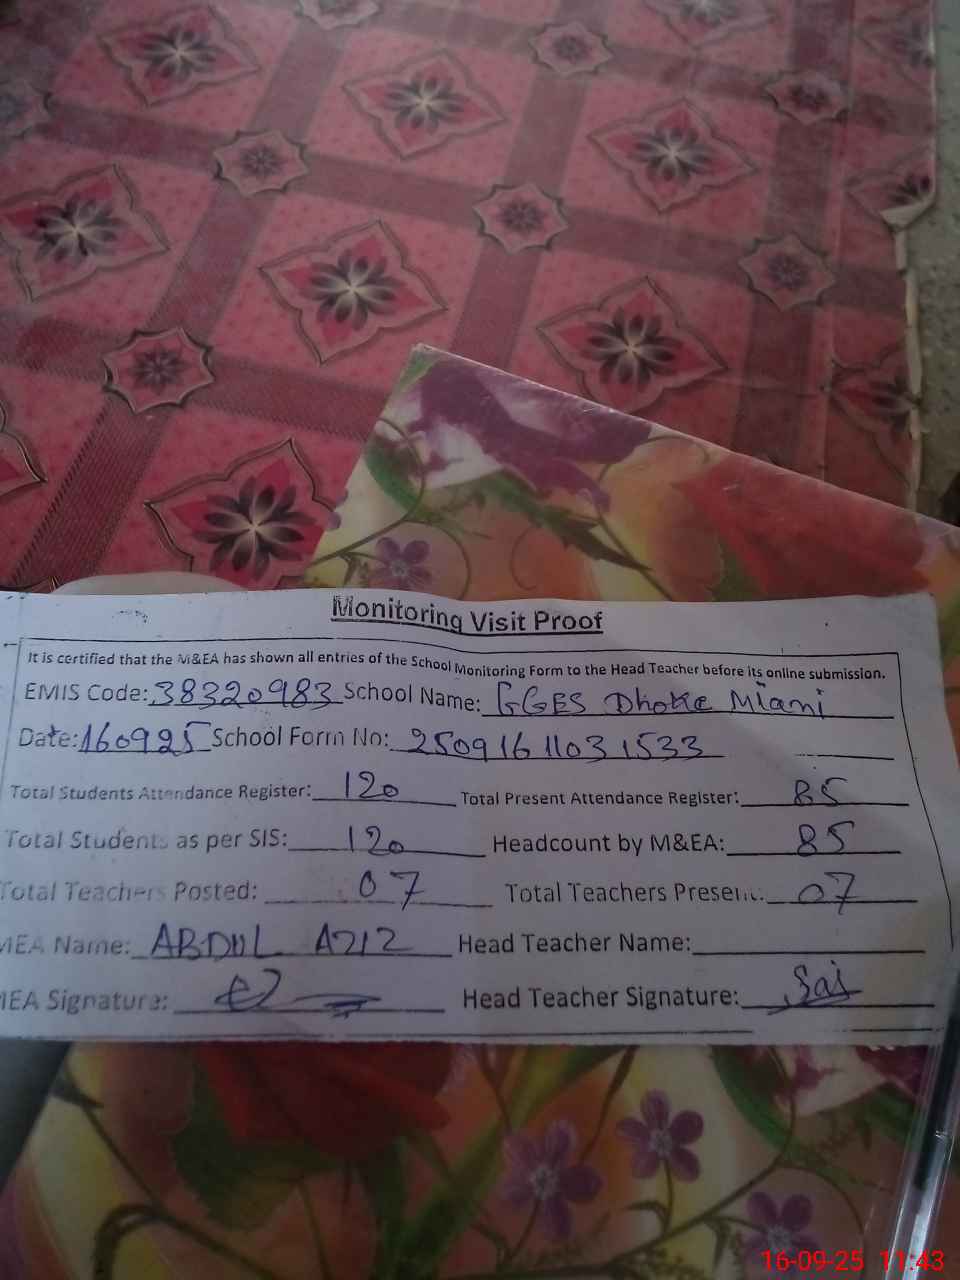 Monitoring Visit Proof
It is certified that the M&EA has shown all entries of the School Monitoring Form to the Head Teacher before its online submission.
EMIS Code: 38320983 School Name: GGES Dhoke Miani
Date: 160925 School Form No: 25091611031533
Total Students Attendance Register: 120 Total Present Attendance Register: 85
Total Students as per SIS: 120 Headcount by M&EA: 85
Total Teachers Posted: 07 Total Teachers Present: 07
MEA Name: ABDUL AZIZ Head Teacher Name:
MEA Signature: Head Teacher Signature:
16-09-25 11:43